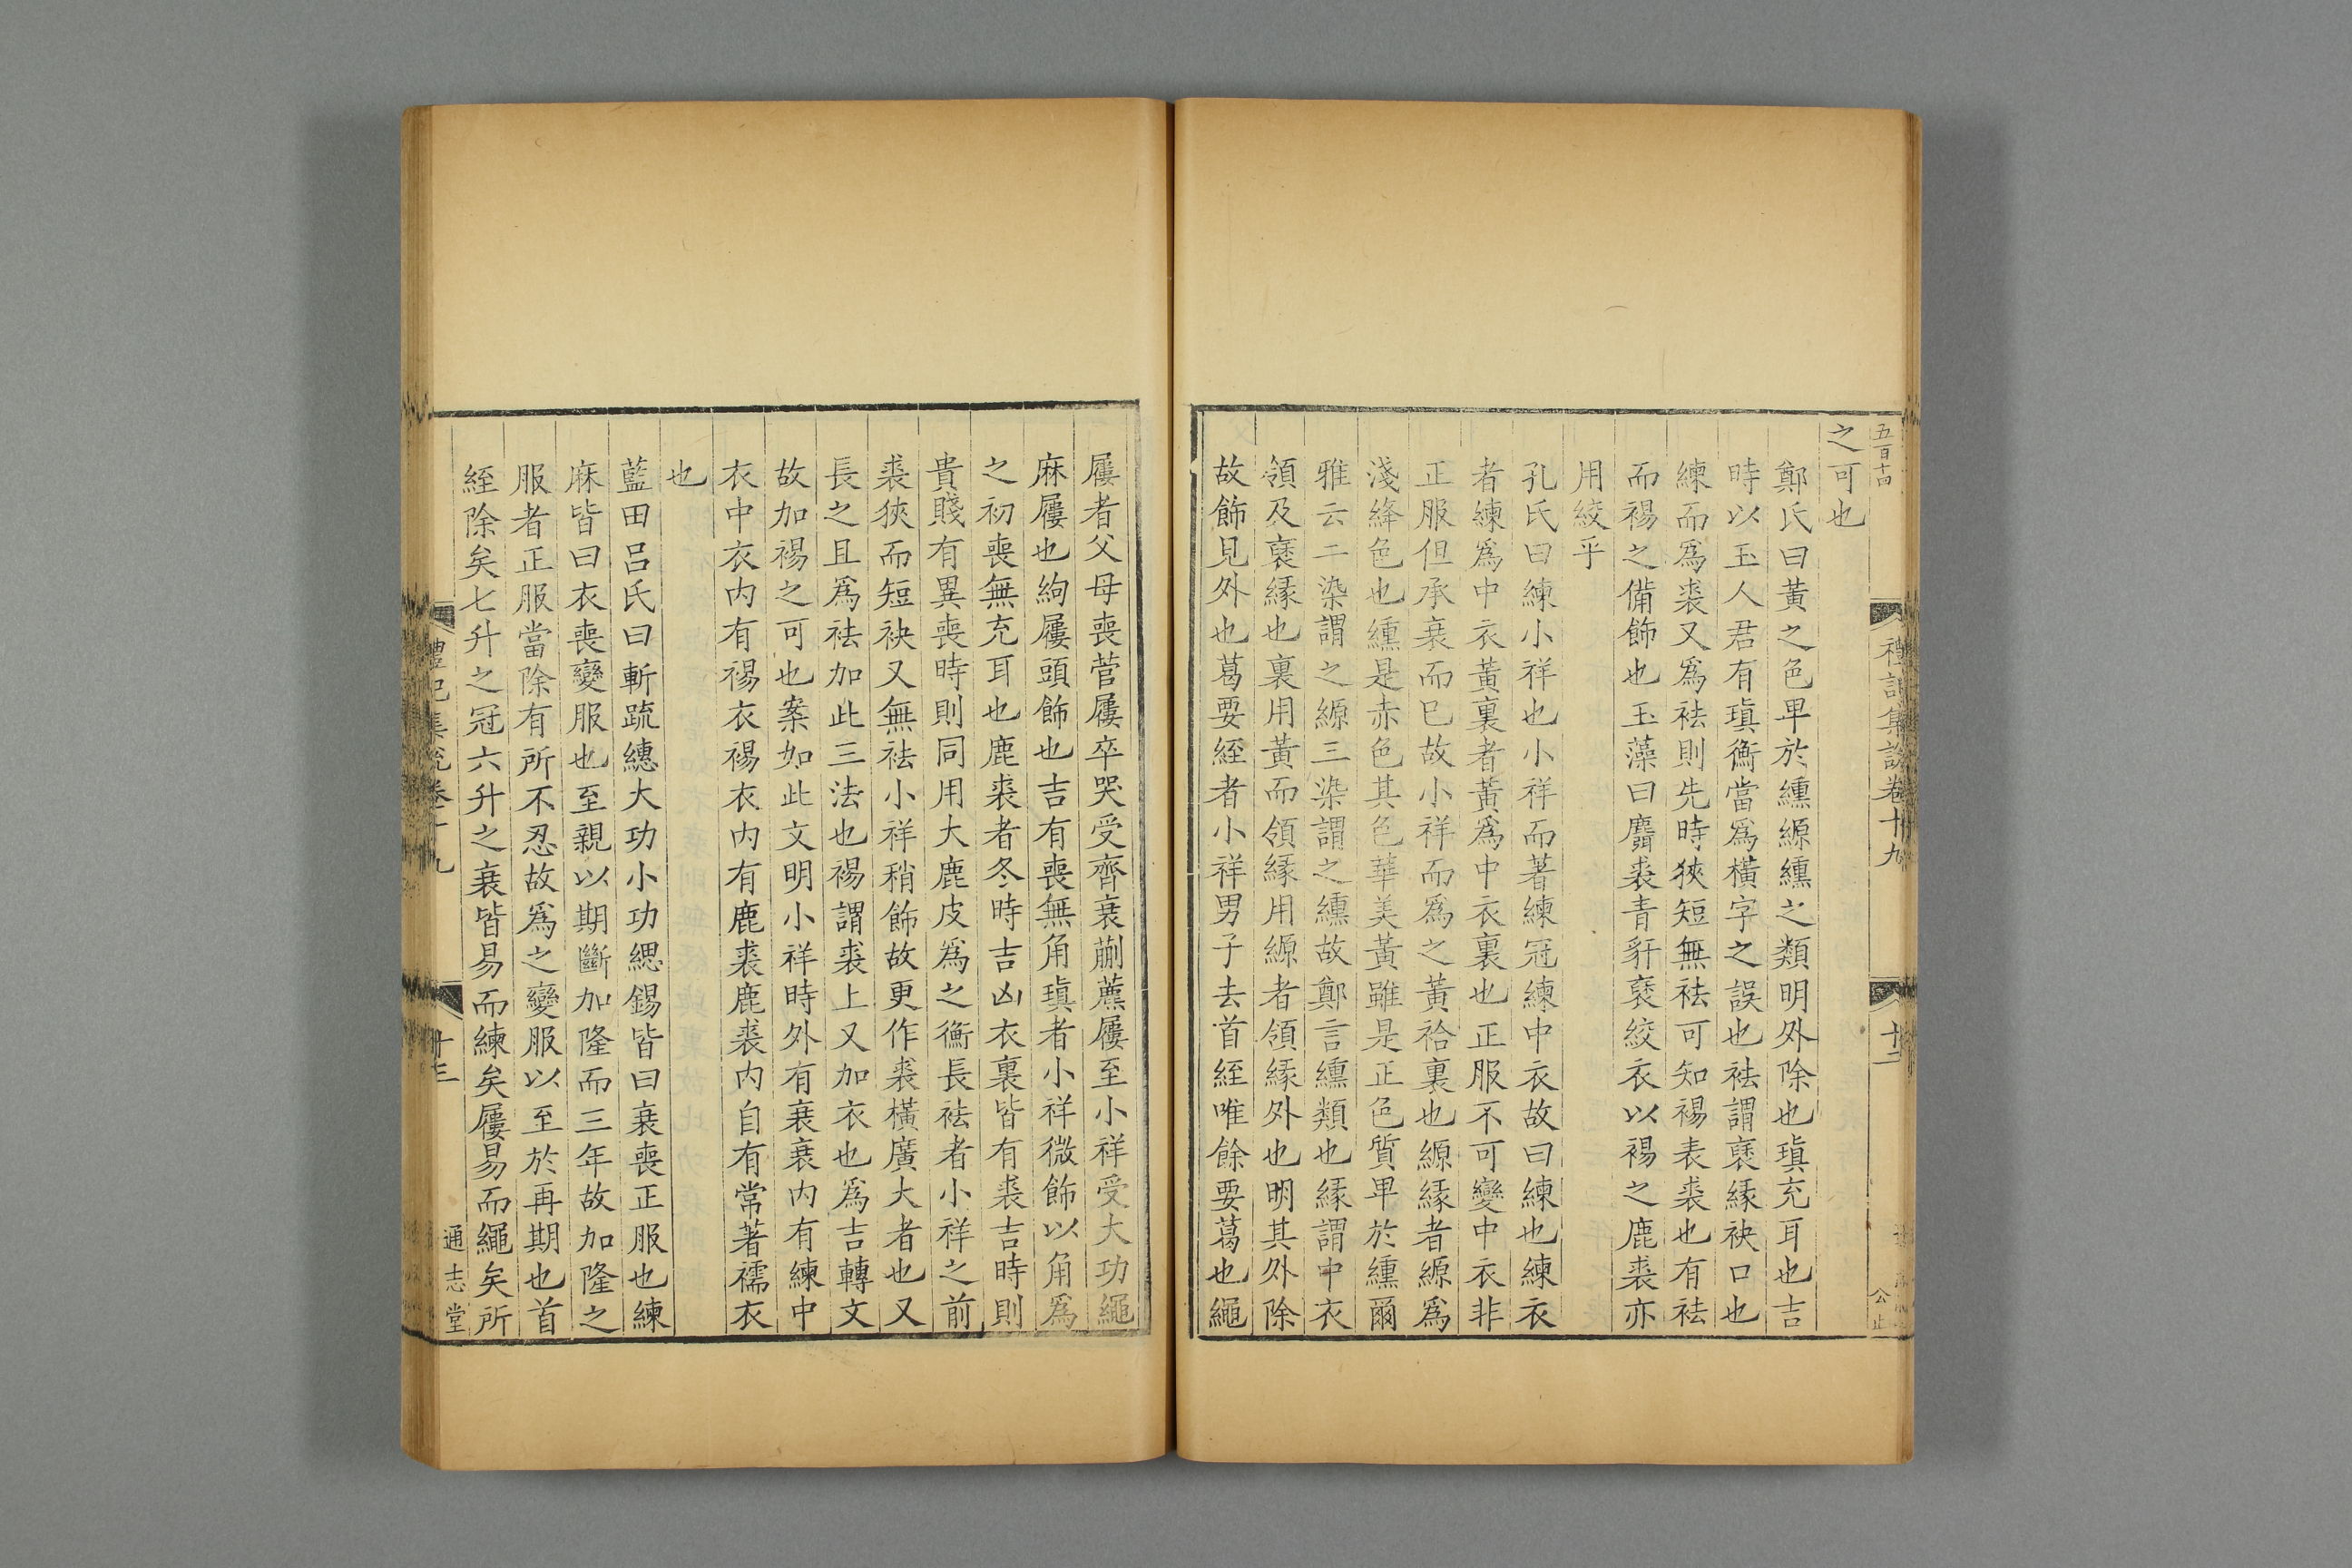 五百十四
禮記集說卷十九
十二
公止
之可也
鄭氏曰黃之色卑於纁縓纁之類明外除也瑱充耳也吉
時以玉人君有瑱衡當爲橫字之誤也袪謂褎緣袂口也
練而爲裘又爲袪則先時狹短無袪可知裼表裘也有袪
而裼之備飾也玉藻曰麛裘青豻褎絞衣以裼之鹿裘亦
用絞乎
孔氏曰練小祥也小祥而著練冠練中衣故曰練也練衣
者練爲中衣黃裏者黃爲中衣裏也正服不可變中衣非
正服但承衰而已故小祥而爲之黃袷裏也縓緣者縓爲
淺絳色也纁是赤色其色華美黃雖是正色質卑於纁爾
雅云一染謂之縓三染謂之纁故鄭言纁類也緣謂中衣
領及褎緣也裏用黃而領緣用縓者領緣外也明其外除
故飾見外也葛要絰者小祥男子去首絰唯餘要葛也繩
屨者父母喪菅屨卒哭受齊衰蒯藨屨至小祥受大功繩
麻屨也絇屨頭飾也吉有喪無角瑱者小祥微飾以角爲
之初喪無充耳也鹿裘者冬時吉凶衣裏皆有裘吉時則
貴賤有異喪時則同用大鹿皮爲之衡長袪者小祥之前
裘狹而短袂又無袪小祥稍飾故更作裘橫廣大者也又
長之且爲袪加此三法也裼謂裘上又加衣也爲吉轉文
故加裼之可也案如此文明小祥時外有衰衰內有練中
衣中衣內有裼衣裼衣內有鹿裘鹿裘內自有常著襦衣
也
藍田呂氏曰斬疏繐大功小功緦錫皆曰衰喪正服也練
麻皆曰衣喪變服也至親以期斷加隆而三年故加隆之
服者正服當除有所不忍故爲之變服以至於再期也首
絰除矣七升之冠六升之衰皆易而練矣屨易而繩矣所
禮記集說卷十九
十三
通志堂